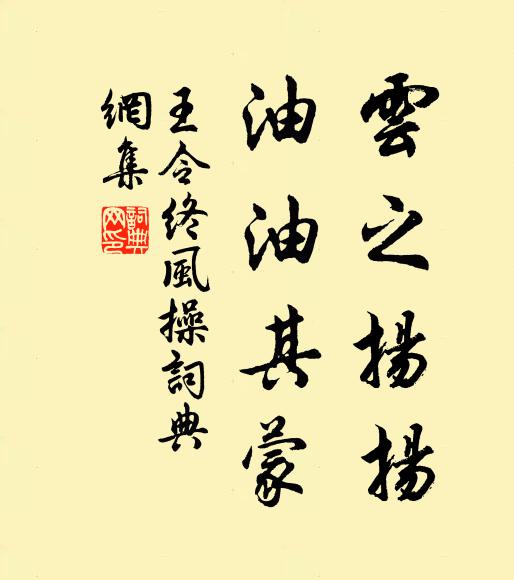 雲之揚揚
油油其蒙
王令終風操詞典
網集
詞典
网印